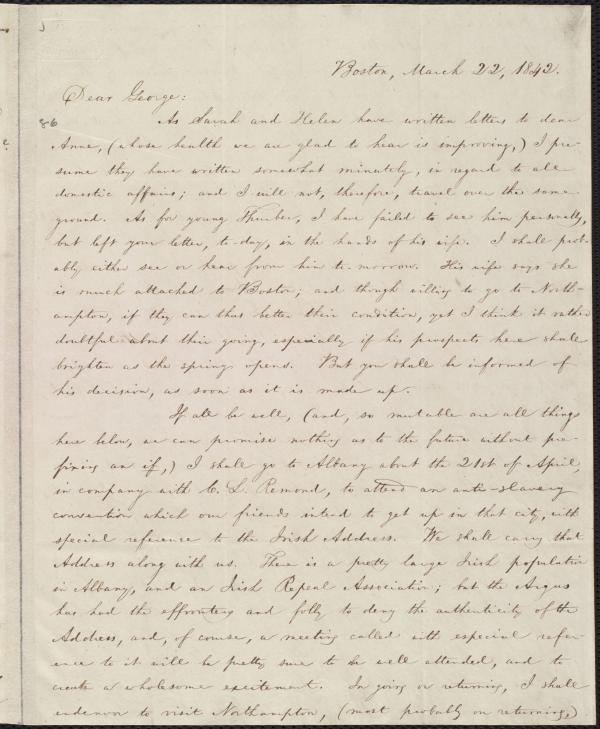 Boston, March 22, 1842.
Dear George:
86
As Sarah and Helen have written letters to dear
Anne, (whose health we are glad to hear is improving,) I pre-
sume they have written somewhat minutely, in regard to all
domestic affairs; and I will not, therefore, travel over the same
ground. As for young Thurber, I have failed to see him personally,
but left your letter, to-day, in the hands of his wife. I shall prob-
ably either see or hear from him to-morrow. His wife says she
is much attached to Boston; and though willing to go to North-
ampton, if they can thus better their condition, yet I think it rather
doubtful about their going, especially if his prospects here shall
brighten as the spring opens. But you shall be informed of
his decision, as soon as it is made up.
If all be well, (and, so mutable are all things
here below, we can promise nothing as to the future without pre-
fixing an if,) I shall go to Albany about the 21st of April,
in company with C. L. Remond, to attend an anti-slavery
convention which our friends intend to get up in that city, with
special reference to the Irish Address. We shall carry that
Address along with us. There is a pretty large Irish population
in Albany, and an Irish Repeal Association; but the Argus
has had the effrontery and folly to deny the authenticity of the
Address, and, of course, a meeting called with especial refer-
ence to it will be pretty sure to be well attended, and to
create a wholesome excitement. In going or returning, I shall
endeavor to visit Northampton, (most probably on returning,)